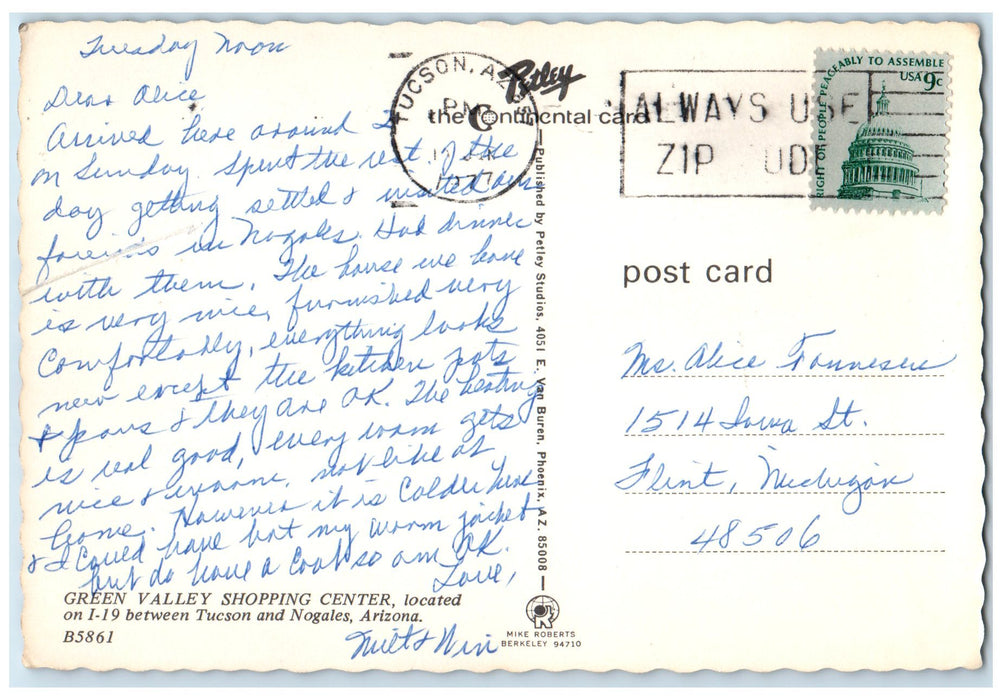 Tuesday Noon
Dear Alice
Arrived here around 2
on Sunday. Spent the rest of the
day getting settled & visited our
friends in Nogales. Had dinner
with them. The house we have
is very nice, furnished very
comfortably, everything looks
new except the kitchen pots
& pans & they are OK. The heating
is real good, every room gets
nice & warm, not like at
home. However it is colder here
& I could have bot my warm jacket
but do have a coat so am OK.
Love,
Milt & Win
GREEN VALLEY SHOPPING CENTER, located
on I-19 between Tucson and Nogales, Arizona.
B5861
TUCSON, AZ
PM
1977
Petley
the Continental card
ALWAYS USE
ZIP
RIGHT OF PEOPLE PEACEABLY TO ASSEMBLE
USA 9c
Published by Petley Studios, 4051 E. Van Buren, Phoenix, AZ. 85008
MIKE ROBERTS
BERKELEY 94710
post card
Ms. Alice
1514 Iowa St.
Flint, Michigan
48506